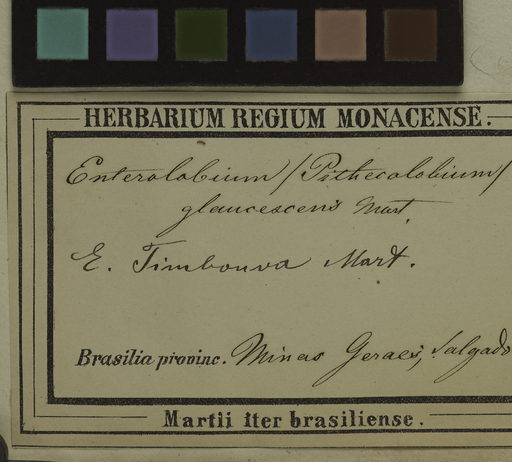 HERBARIUM REGIUM MONACENSE.
Enterolobium / Pithecolobium /
glaucescens Mart.
E. Timbouva Mart.
Brasilia provinc. Minas Geraes, Salgado
Martii iter brasiliense.